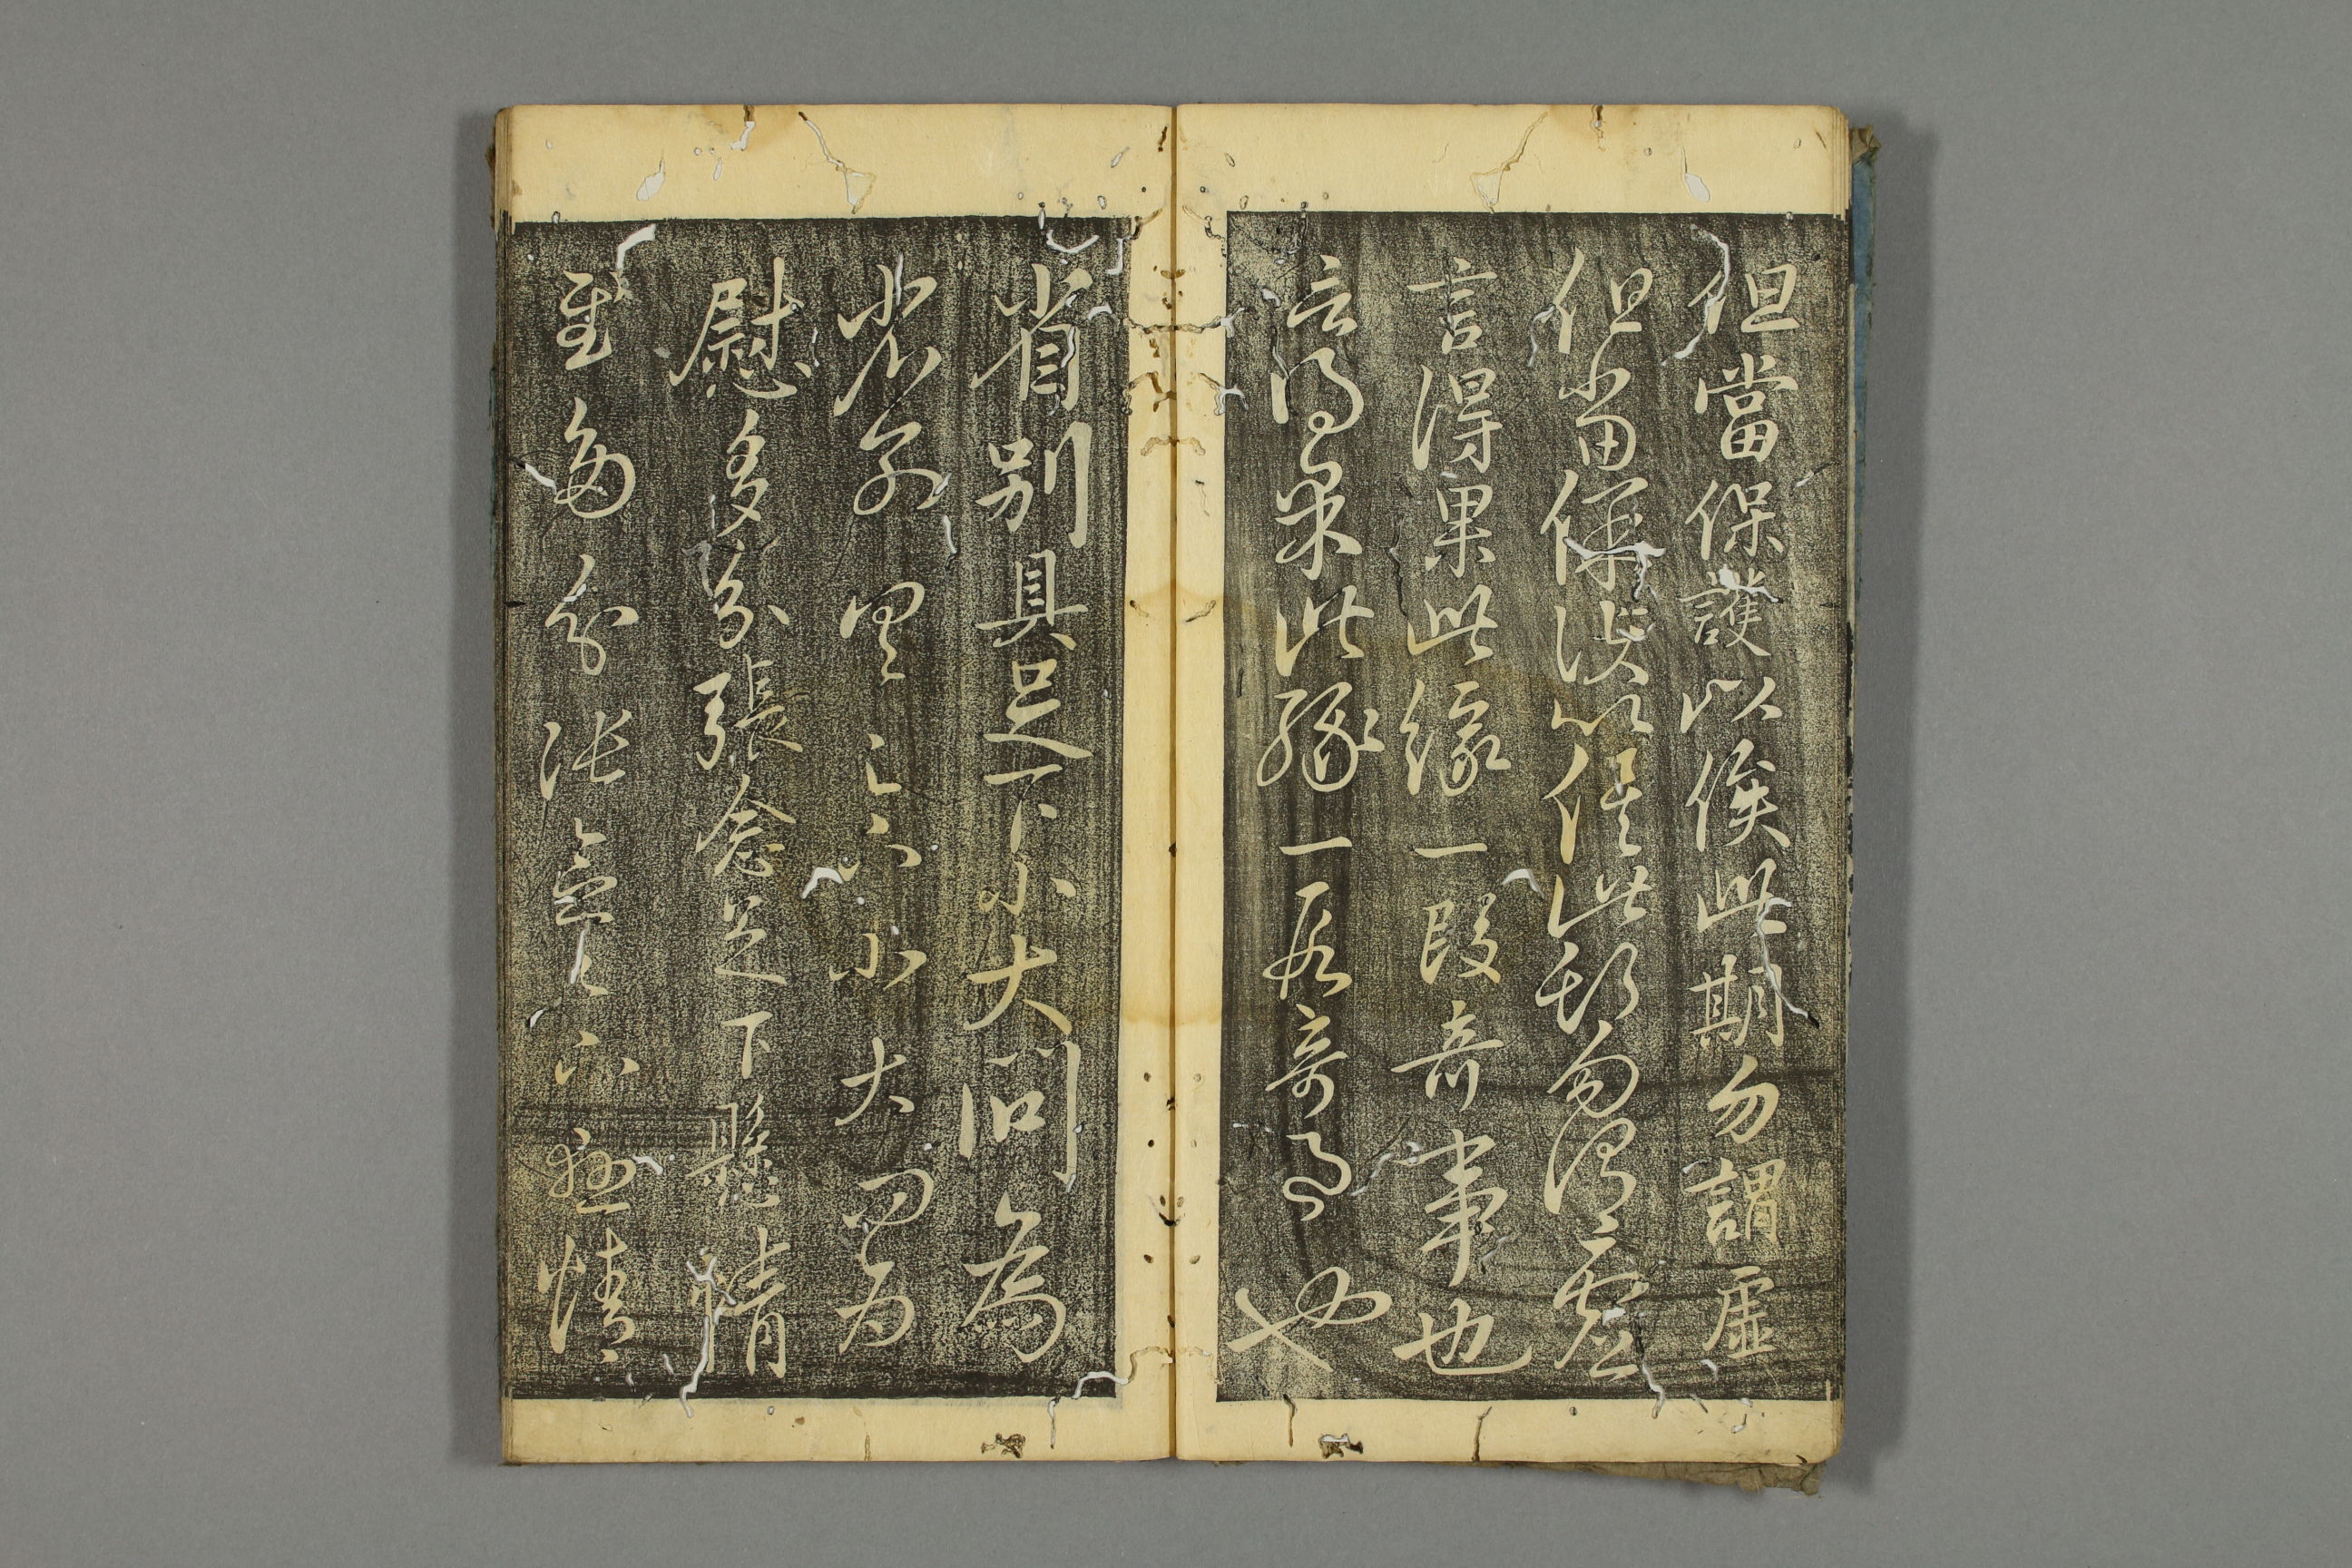 但當保護以俟此期勿謂虛
但當保護以俟此期勿謂虛
言得果此緣一段奇事也
言得果此緣一段奇事也
省別具足下小大問為
省別具足下小大問為
慰多分張念足下懸情
慰多分張念足下懸情